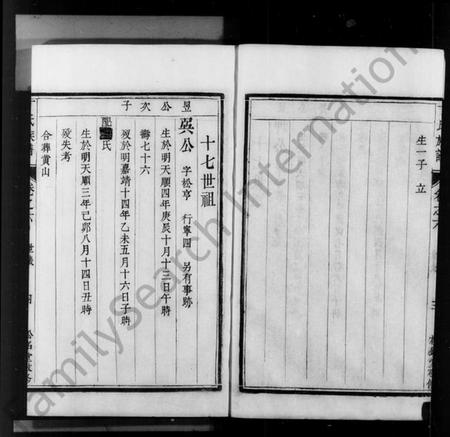 生一子 立
十七世祖
昱公次子
㒷公 字松亭 行寧四 另有事跡
生於明天順四年庚辰十月十三日午時
壽七十六
歿於明嘉靖十四年乙未五月十六日子時
配 氏
生於明天順三年己卯八月十四日丑時
歿失考
合葬黄山
氏族譜 卷之六 世表 四
氏族譜 卷之六 三
FamilySearch International